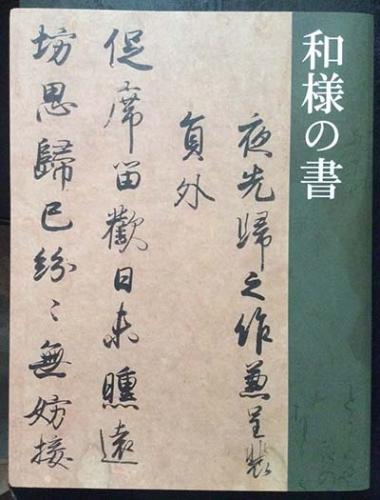 和様の書
夜先歸之作兼呈裴
員外
促席留歡日未曛遠
坊思歸已紛〻無妨按